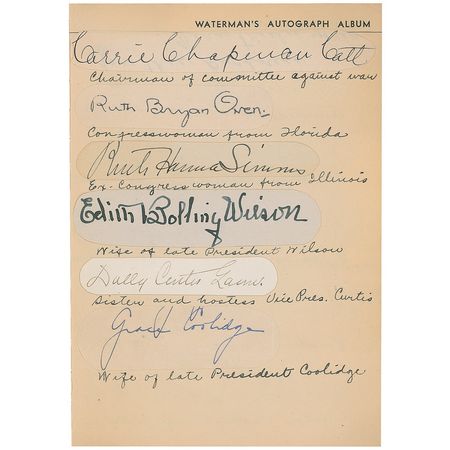 WATERMAN'S AUTOGRAPH ALBUM
Carrie Chapman Catt
Chairman of committee against war
Ruth Bryan Owen.
Congresswoman from Florida
Ruth Hanna Simms
Ex-Congresswoman from Illinois
Edith Bolling Wilson
Wife of late President Wilson
Dolly Curtis Gann.
Sister and hostess Vice Pres. Curtis
Grace Coolidge
Wife of late President Coolidge